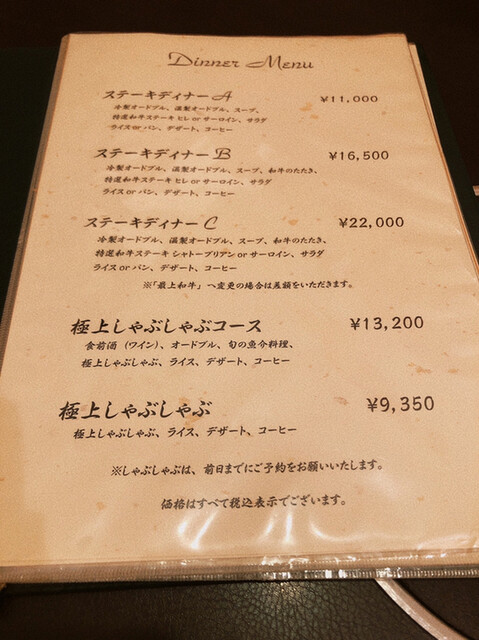 Dinner Menu
ステーキディナー A ¥11,000
冷製オードブル、温製オードブル、スープ、
特選和牛ステーキ ヒレ or サーロイン、サラダ
ライス or パン、デザート、コーヒー
ステーキディナー B ¥16,500
冷製オードブル、温製オードブル、スープ、和牛のたたき、
特選和牛ステーキ ヒレ or サーロイン、サラダ
ライス or パン、デザート、コーヒー
ステーキディナー C ¥22,000
冷製オードブル、温製オードブル、スープ、和牛のたたき、
特選和牛ステーキ シャトーブリアン or サーロイン、サラダ
ライス or パン、デザート、コーヒー
※「最上和牛」へ変更の場合は差額をいただきます。
極上しゃぶしゃぶコース ¥13,200
食前酒（ワイン）、オードブル、旬の魚介料理、
極上しゃぶしゃぶ、ライス、デザート、コーヒー
極上しゃぶしゃぶ ¥9,350
極上しゃぶしゃぶ、ライス、デザート、コーヒー
※しゃぶしゃぶは、前日までにご予約をお願いいたします。
価格はすべて税込表示でございます。